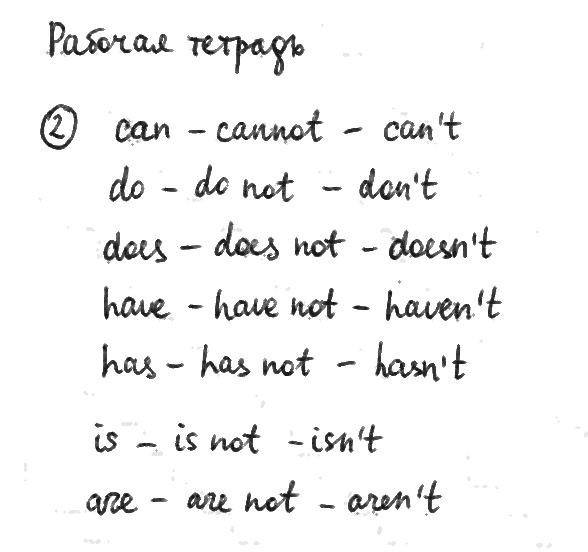 Рабочая тетрадь
② can – cannot – can't
do – do not – don't
does – does not – doesn't
have – have not – haven't
has – has not – hasn't
is – is not – isn't
are – are not – aren't